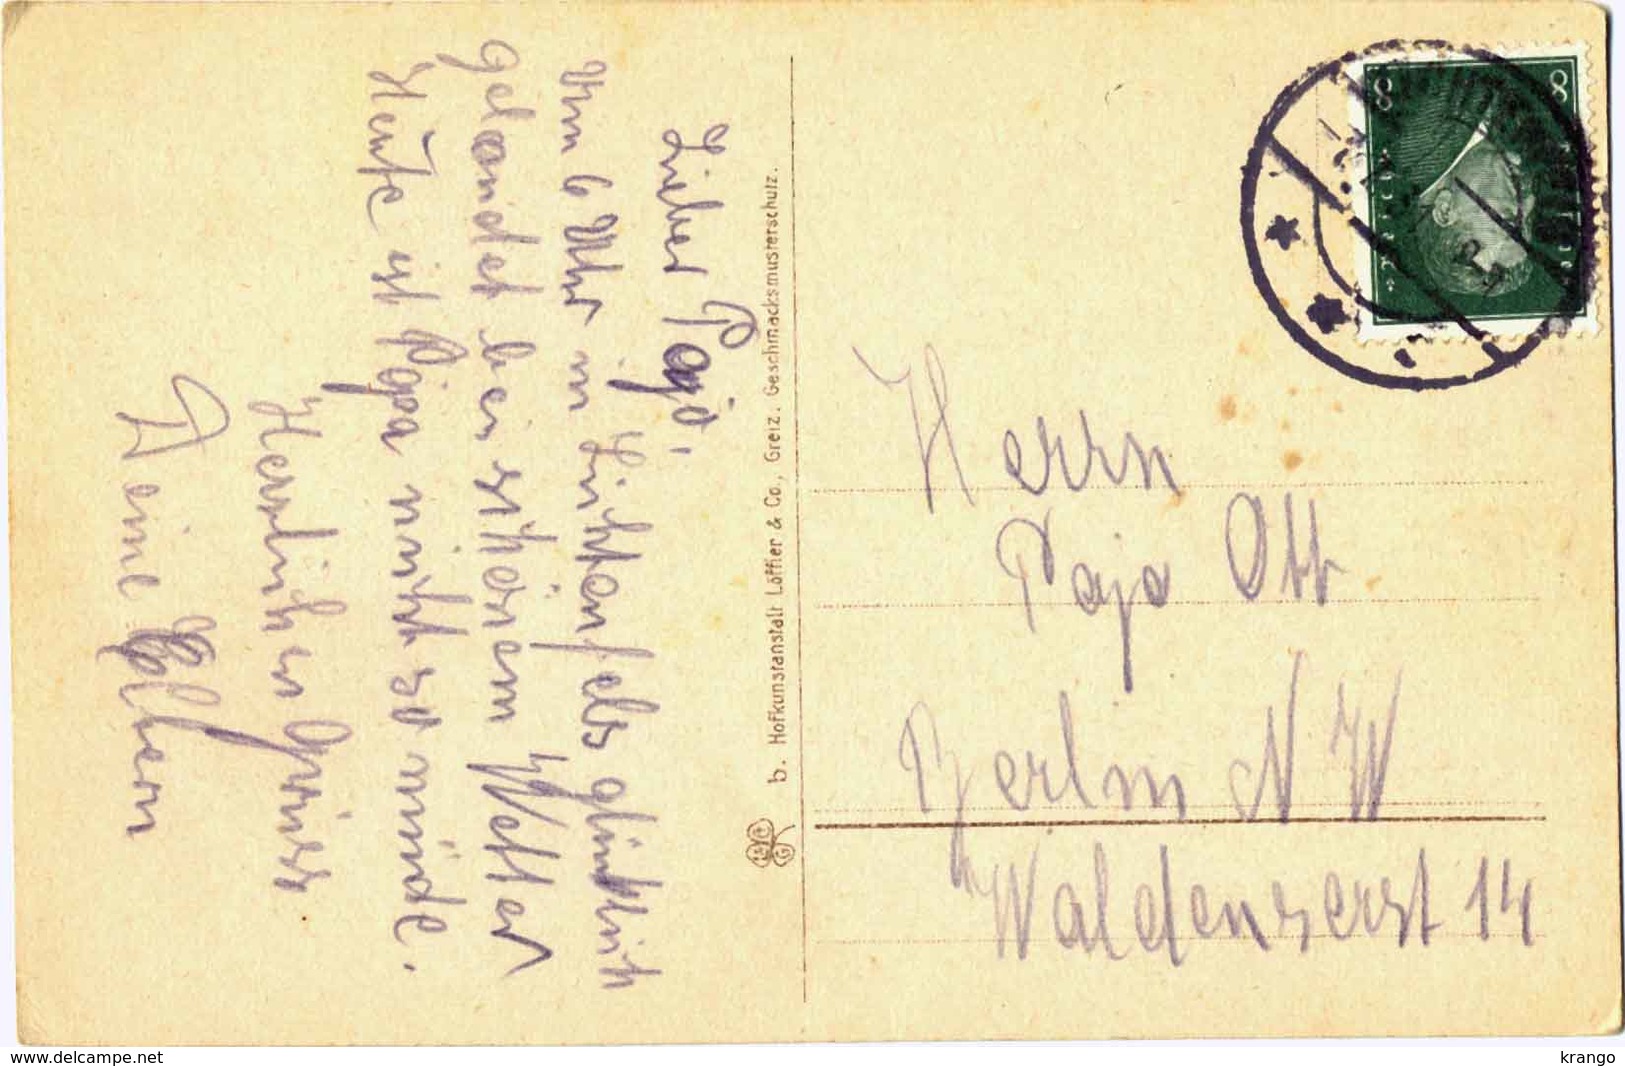 Lieber Pajo,
Um 6 Uhr in Lichtenfels glücklich
gelandet bei schönem Wetter
Heute ist Papa nicht so müde.
Herzlichen Gruss
Deine Eltern
b. Hofkunstanstalt Löffler & Co., Greiz. Geschmacksmusterschutz.
8 8
Herrn
Pajo Ott
Berlin NW
Waldenserst 14
www.delcampe.net
krango